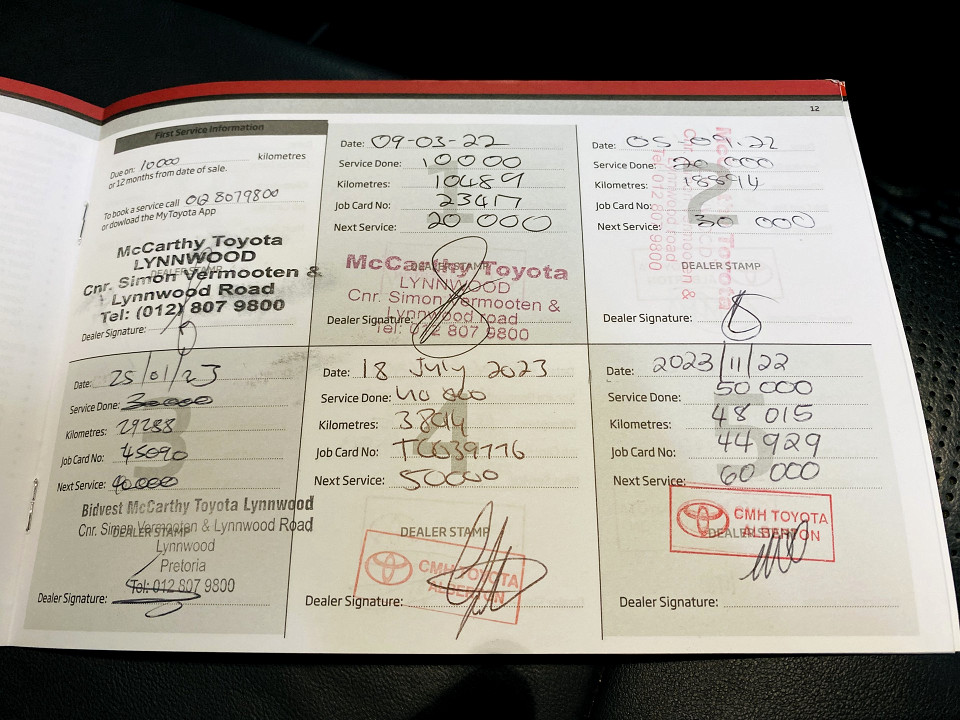 12
First Service Information
Due on: 10 000 kilometres
or 12 months from date of sale.
To book a service call 012 8079800
or dowload the MyToyota App
McCarthy Toyota
LYNNWOOD
DEALER STAMP
Cnr. Simon Vermooten &
Lynnwood Road
Tel: (012) 807 9800
Dealer Signature:
1
Date: 09-03-22
Service Done: 10000
Kilometres: 10489
Job Card No: 23417
Next Service: 20 000
DEALER STAMP
McCarthy Toyota
LYNNWOOD
Cnr. Simon Vermooten &
Lynnwood road
Tel: 012 807 9800
Dealer Signature:
2
Date: 05-09-22
Service Done: 20 000
Kilometres: 18894
Job Card No:
Next Service: 30 000
McCarthy Toyota
Tel: 012 807 9800
DEALER STAMP
Dealer Signature:
3
Date: 25/01/23
Service Done: 30000
Kilometres: 29288
Job Card No: 45090
Next Service: 40000
Bidvest McCarthy Toyota Lynnwood
Cnr. Simon Vermooten & Lynnwood Road
DEALER STAMP
Lynnwood
Pretoria
Tel: 012 807 9800
Dealer Signature:
4
Date: 18 July 2023
Service Done: 40 000
Kilometres: 3894
Job Card No: TC039776
Next Service: 50000
DEALER STAMP
CMH TOYOTA
ALBERTON
Dealer Signature:
5
Date: 2023/11/22
Service Done: 50 000
Kilometres: 48 015
Job Card No: 44929
Next Service: 60 000
CMH TOYOTA
DEALER STAMP
ALBERTON
Dealer Signature: